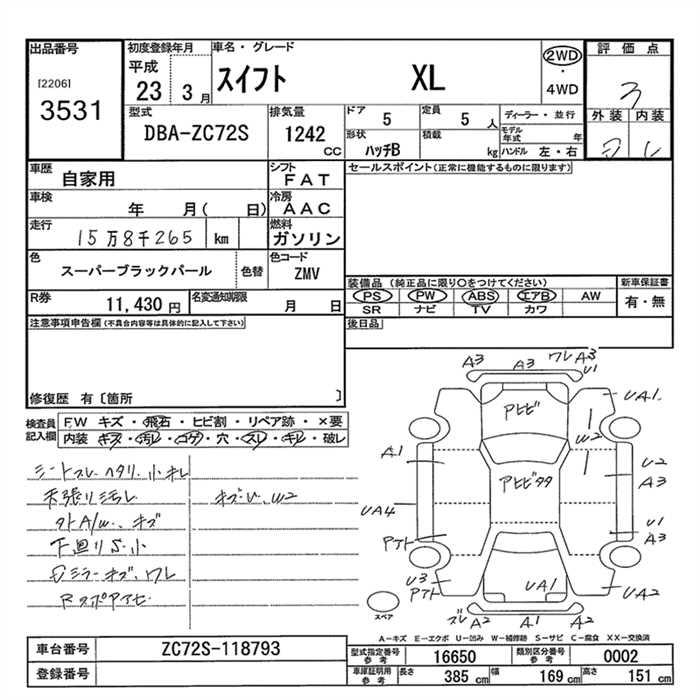 出品番号
[2206]
3531
初度登録年月
平成
23 3 月
車名・グレード
スイフト XL
2WD
・
4WD
評価点
3
外装 内装
型式
DBA-ZC72S
排気量
1242
CC
ドア 5
定員 5 人
形状 ハッチB
積載 kg
ディーラー・並行
モデル年式 年
ハンドル 左・右
車歴 自家用
シフト FAT
セールスポイント(正常に機能するものに限ります)
車検 年 月( 日)
冷房 AAC
走行 15万8千265 km
燃料 ガソリン
色 スーパーブラックパール
色替
色コード ZMV
装備品 (純正品に限り〇をつけてください)
新車保証書
PS PW ABS エアB AW
有・無
SR ナビ TV カワ
R券 11,430 円
名変通知期限 月 日
後日品
注意事項申告欄(不具合内容等は具体的に記入して下さい)
修復歴 有〔箇所 〕
検査員記入欄
FW キズ・飛石・ヒビ割・リペア跡・×要
内装 キズ・汚レ・コゲ・穴・スレ・キレ・破レ
シートスレ、ヘタリ、小キレ
天張リ汚レ
キズ・U、W2
外A/W、キズ
下回りS小
ミラーキズ、ワレ
A3
A3
ワレ A3
U1
アトヒビ
UA1
W2
A1
アトヒビタタ
U2
A3
UA4
U1
A3
アトト
U3
アトト
UA1
UA2
ズレ A2
A1
A2
スペア
A-キズ E-エクボ U-凹み W-補修跡 S-サビ C-腐食 XX-交換済
車台番号 ZC72S-118793
登録番号
型式指定番号 参考 16650
類別区分番号 参考 0002
車庫証明用 参考
長さ 385 cm
幅 169 cm
高さ 151 cm